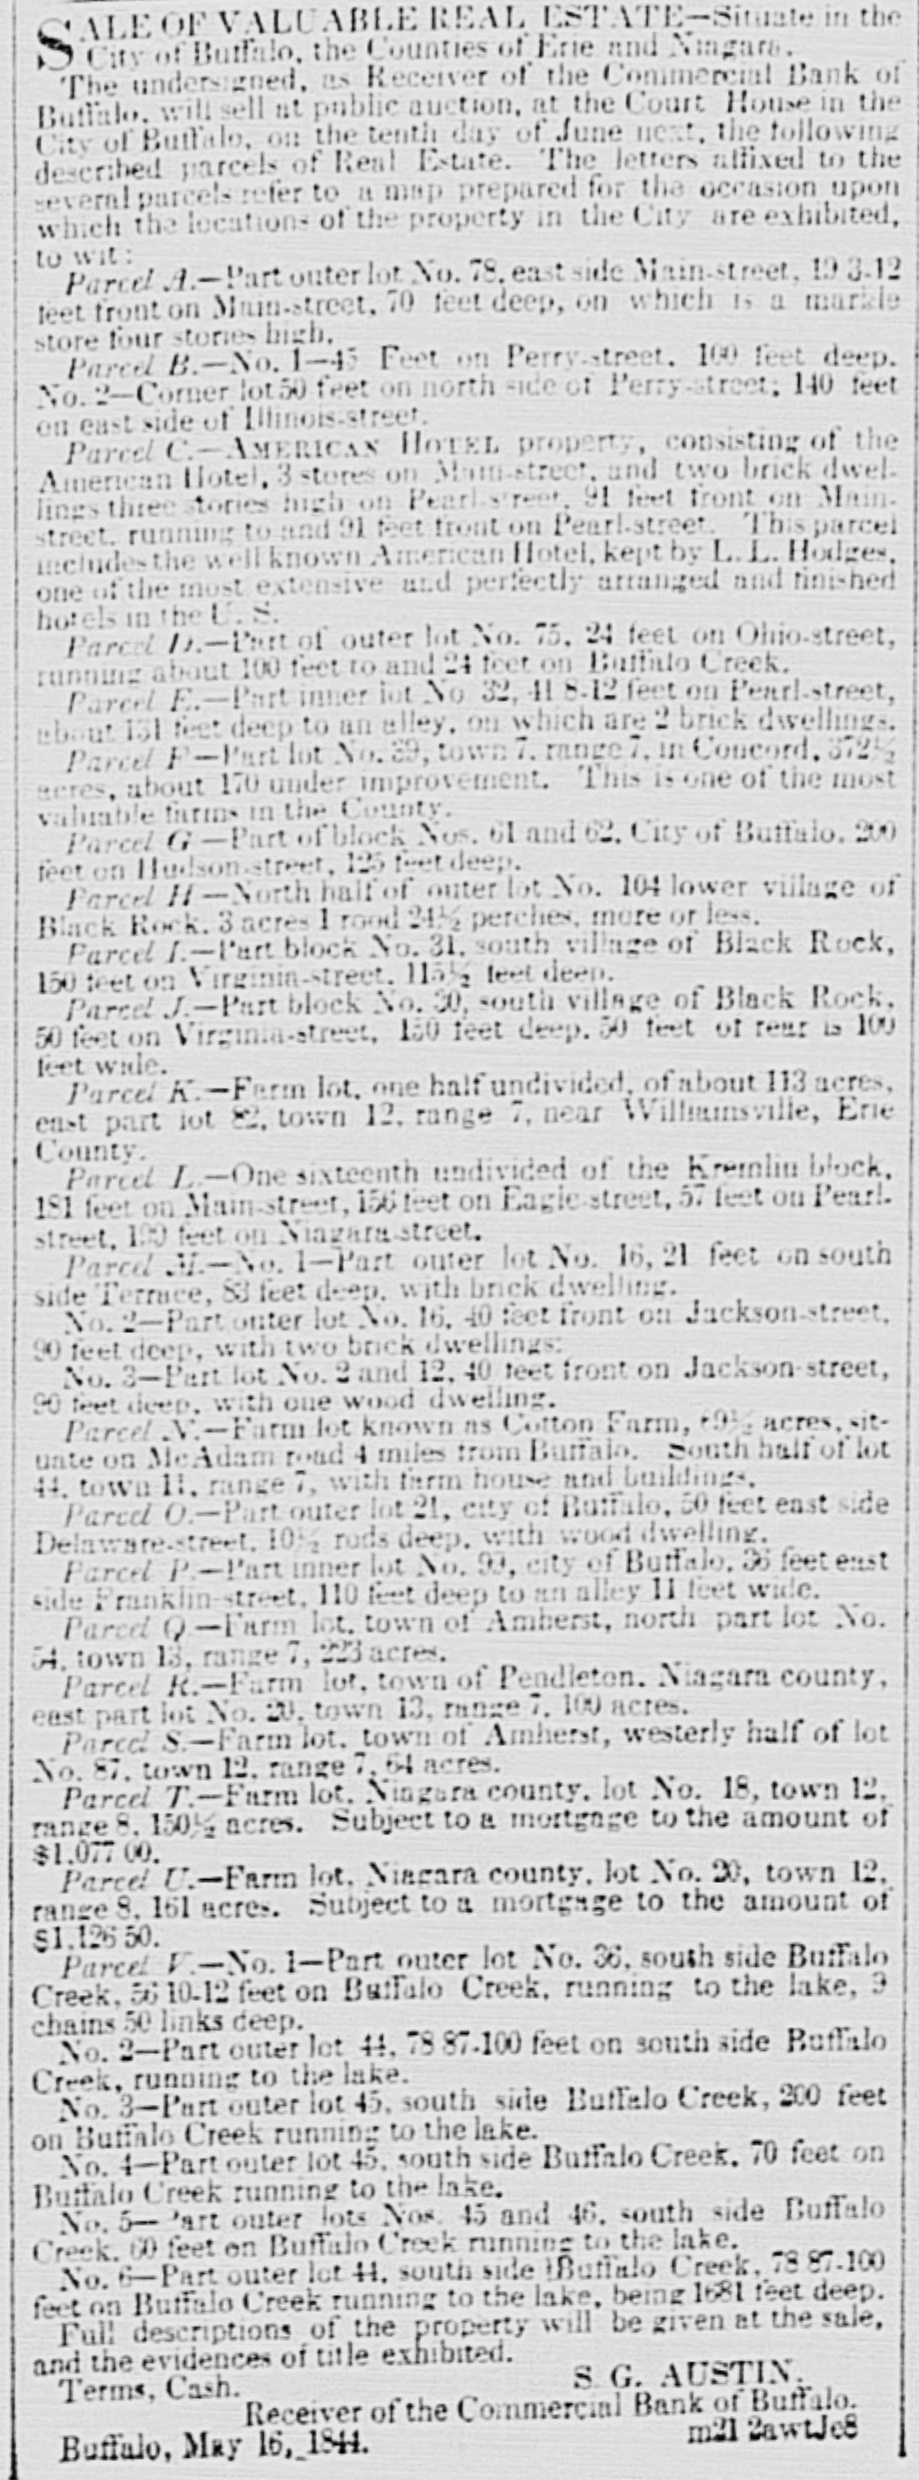 SALE OF VALUABLE REAL ESTATE—Situate in the
City of Buffalo, the Counties of Erie and Niagara.
The undersigned, as Receiver of the Commercial Bank of
Buffalo, will sell at public auction, at the Court House in the
City of Buffalo, on the tenth day of June next, the following
described parcels of Real Estate. The letters affixed to the
several parcels refer to a map prepared for the occasion upon
which the locations of the property in the City are exhibited,
to wit:
Parcel A.—Part outer lot No. 78, east side Main-street, 19 3-12
feet front on Main-street, 70 feet deep, on which is a marble
store four stories high.
Parcel B.—No. 1—45 Feet on Perry-street, 100 feet deep.
No. 2—Corner lot 50 feet on north side of Perry-street; 140 feet
on east side of Illinois-street.
Parcel C.—AMERICAN HOTEL property, consisting of the
American Hotel, 3 stores on Main-street, and two brick dwel-
lings three stories high on Pearl-street, 91 feet front on Main-
street, running to and 91 feet front on Pearl-street. This parcel
includes the well known American Hotel, kept by L. L. Hodges,
one of the most extensive and perfectly arranged and finished
hotels in the U. S.
Parcel D.—Part of outer lot No. 75, 24 feet on Ohio-street,
running about 100 feet to and 24 feet on Buffalo Creek.
Parcel E.—Part inner lot No 32, 41 8-12 feet on Pearl-street,
about 131 feet deep to an alley, on which are 2 brick dwellings.
Parcel F—Part lot No. 39, town 7, range 7, in Concord, 372½
acres, about 170 under improvement. This is one of the most
valuable farms in the County.
Parcel G—Part of block Nos. 61 and 62, City of Buffalo, 200
feet on Hudson-street, 125 feet deep.
Parcel H—North half of outer lot No. 104 lower village of
Black Rock, 3 acres 1 rood 24½ perches, more or less.
Parcel I.—Part block No. 31, south village of Black Rock,
150 feet on Virginia-street, 115½ feet deep.
Parcel J.—Part block No. 30, south village of Black Rock,
50 feet on Virginia-street, 150 feet deep, 50 feet of rear is 100
feet wide.
Parcel K.—Farm lot, one half undivided, of about 113 acres,
east part lot 82, town 12, range 7, near Williamsville, Erie
County.
Parcel L.—One sixteenth undivided of the Kremlin block,
181 feet on Main-street, 156 feet on Eagle-street, 57 feet on Pearl-
street, feet on Niagara-street.
Parcel M.—No. 1—Part outer lot No. 16, 21 feet on south
side Terrace, 83 feet deep, with brick dwelling.
No. 2—Part outer lot No. 16, 40 feet front on Jackson-street,
90 feet deep, with two brick dwellings:
No. 3—Part lot No. 2 and 12, 40 feet front on Jackson-street,
90 feet deep, with one wood dwelling.
Parcel N.—Farm lot known as Cotton Farm, acres, sit-
uate on McAdam road 4 miles from Buffalo. South half of lot
44, town 11, range 7, with farm house and buildings.
Parcel O.—Part outer lot 21, city of Buffalo, 50 feet east side
Delaware-street, 10½ rods deep, with wood dwelling.
Parcel P.—Part inner lot No. 99, city of Buffalo, 36 feet east
side Franklin-street, 110 feet deep to an alley 11 feet wide.
Parcel Q—Farm lot, town of Amherst, north part lot No.
54, town 13, range 7, 223 acres.
Parcel R.—Farm lot, town of Pendleton, Niagara county,
east part lot No. 20, town 13, range 7, 100 acres.
Parcel S.—Farm lot, town of Amherst, westerly half of lot
No. 87, town 12, range 7, 64 acres.
Parcel T.—Farm lot, Niagara county, lot No. 18, town 12,
range 8, 150½ acres. Subject to a mortgage to the amount of
$1,077 00.
Parcel U.—Farm lot, Niagara county, lot No. 20, town 12,
range 8, 161 acres. Subject to a mortgage to the amount of
$1,126 50.
Parcel V.—No. 1—Part outer lot No. 36, south side Buffalo
Creek, 56 10-12 feet on Buffalo Creek, running to the lake, 9
chains 50 links deep.
No. 2—Part outer lot 44, 78 87-100 feet on south side Buffalo
Creek, running to the lake.
No. 3—Part outer lot 45, south side Buffalo Creek, 200 feet
on Buffalo Creek running to the lake.
No. 4—Part outer lot 45, south side Buffalo Creek, 70 feet on
Buffalo Creek running to the lake.
No. 5—Part outer lots Nos. 45 and 46, south side Buffalo
Creek, 60 feet on Buffalo Creek running to the lake.
No. 6—Part outer lot 44, south side Buffalo Creek, 78 87-100
feet on Buffalo Creek running to the lake, being 1681 feet deep.
Full descriptions of the property will be given at the sale,
and the evidences of title exhibited.
Terms, Cash.
S. G. AUSTIN,
Receiver of the Commercial Bank of Buffalo.
Buffalo, May 16, 1844.
m21 2awtJe8